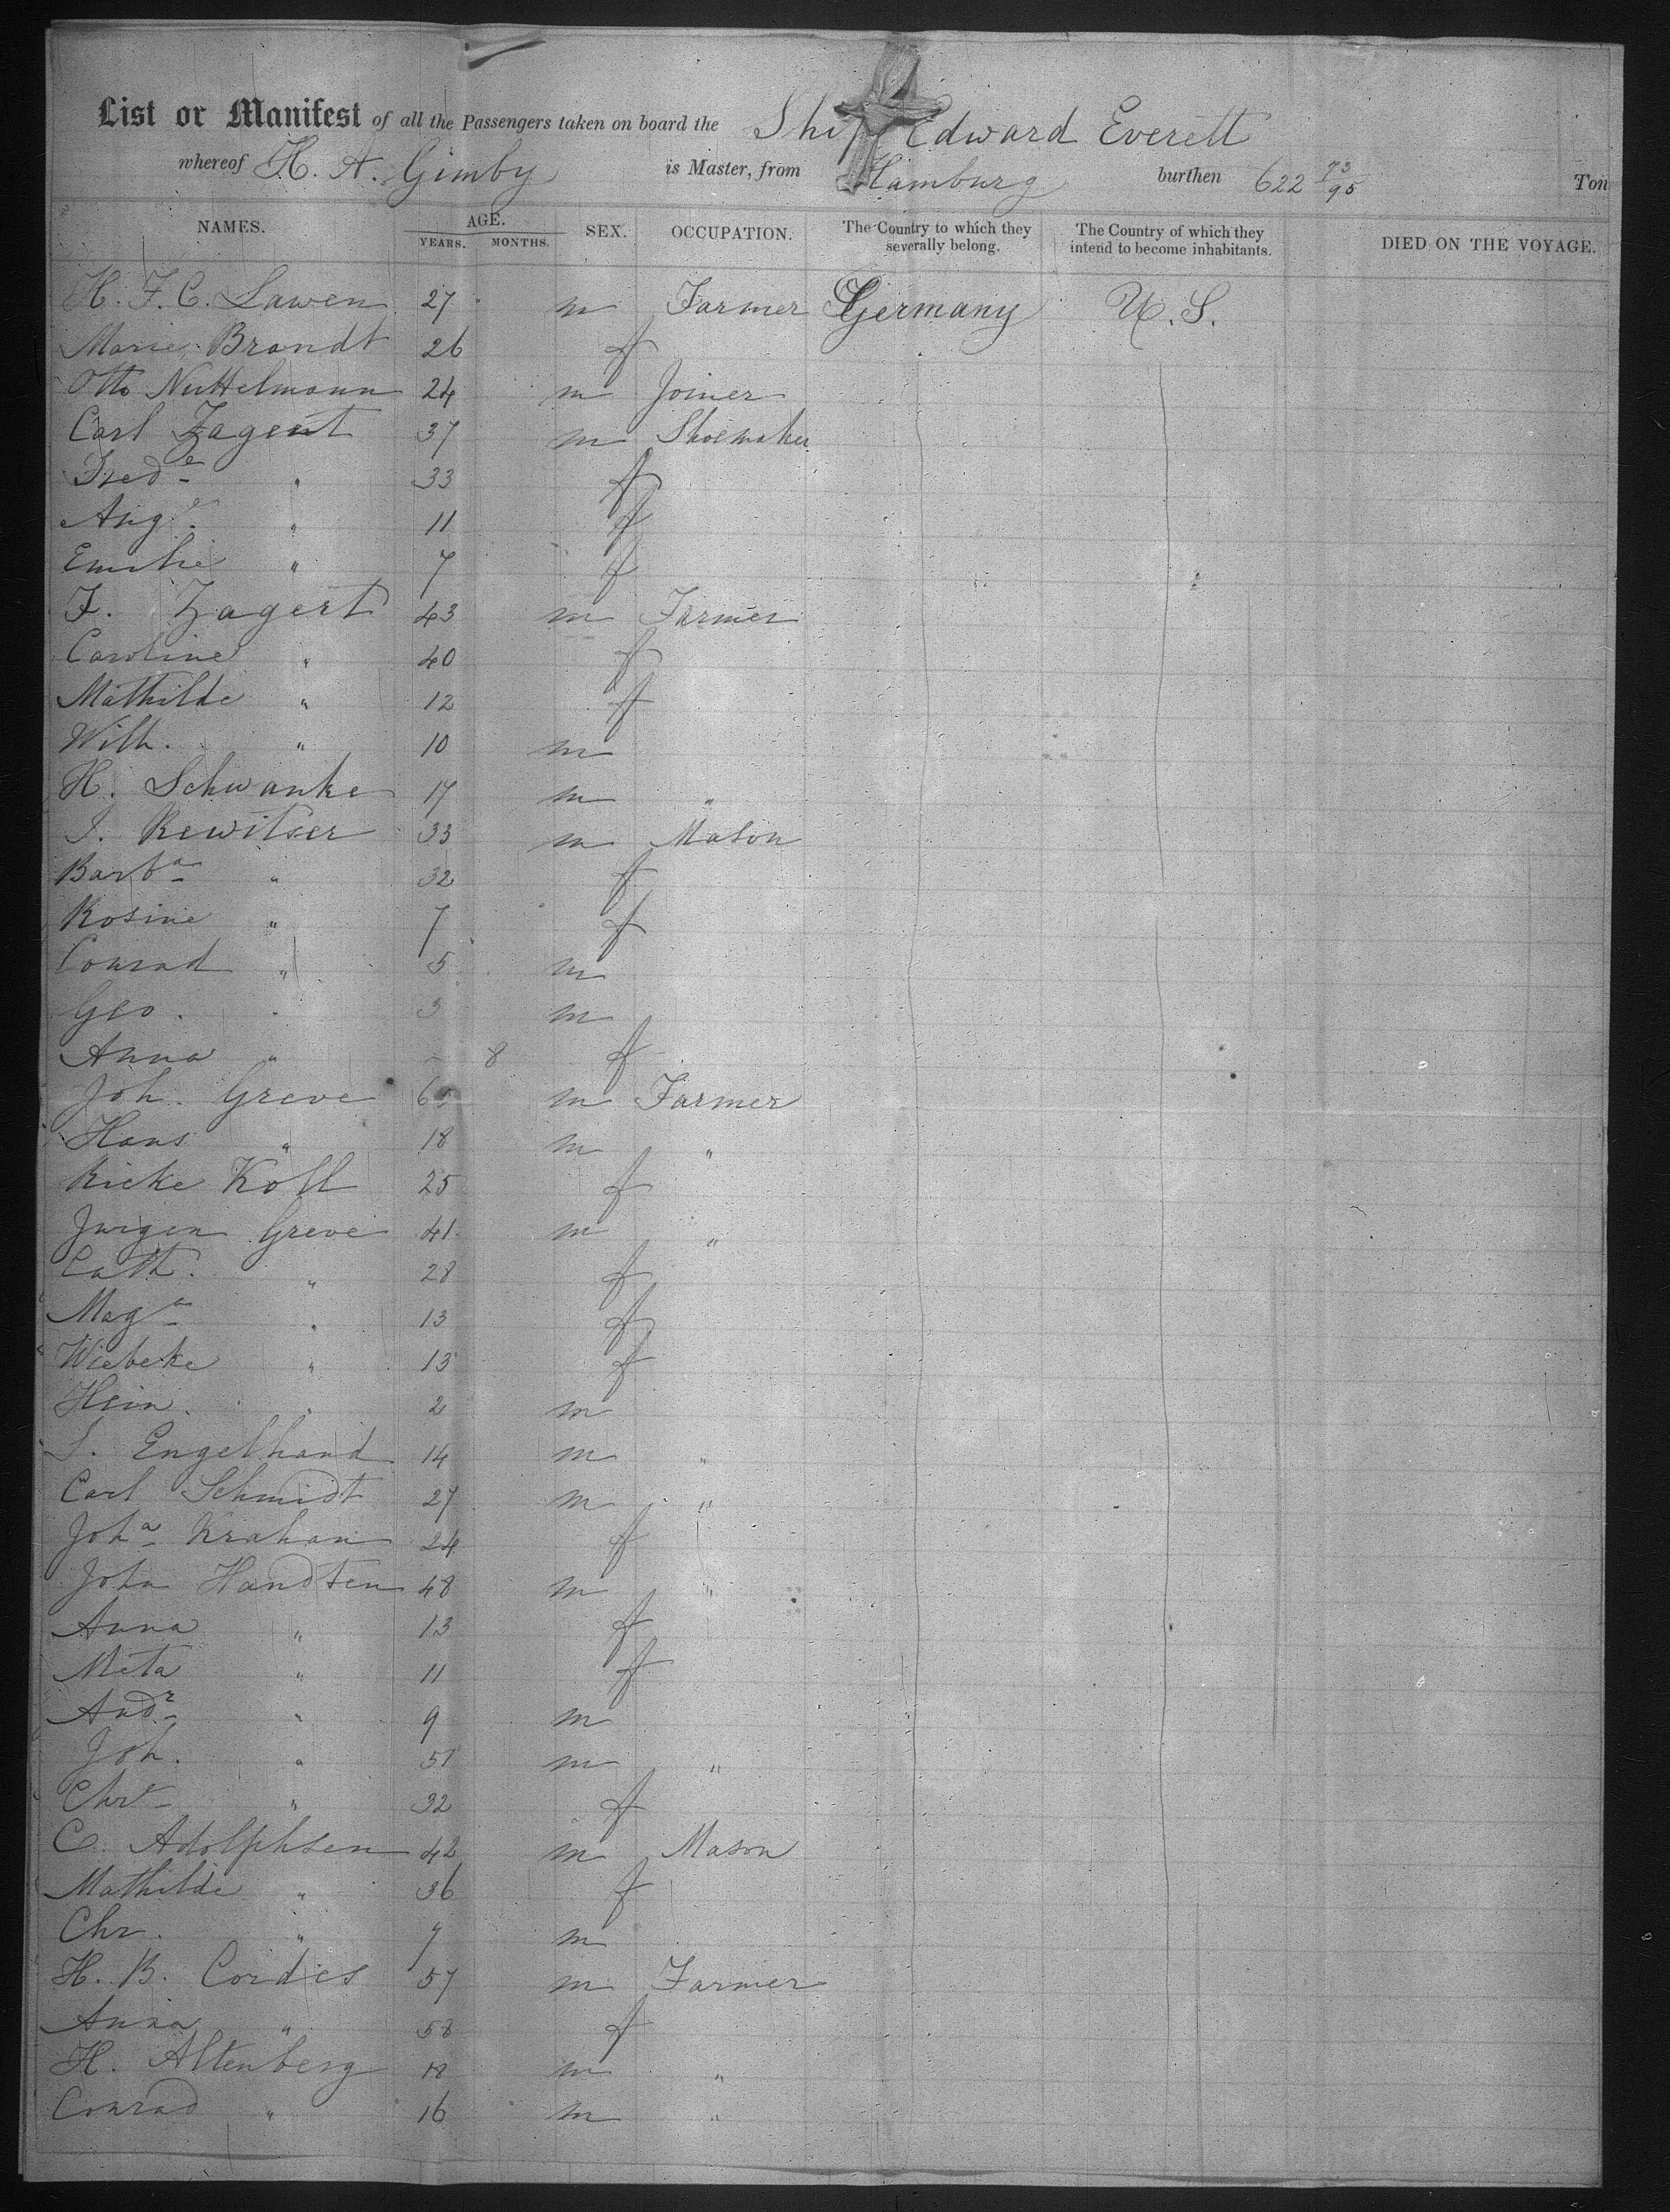 List or Manifest of all the Passengers taken on board the Ship Edward Everett
whereof H. A. Gimby is Master, from Hamburg burthen 622 73/95 Ton
NAMES. AGE. YEARS. MONTHS. SEX. OCCUPATION. The Country to which they severally belong. The Country of which they intend to become inhabitants. DIED ON THE VOYAGE.
H. F. C. Lawen 27 m Farmer Germany U. S.
Marie Brandt 26 f
Otto Nuttelmann 24 m Joiner
Carl Zagert 37 m Shoemaker
Fred.e " 33 f
Aug.e " 11 f
Emilie " 7 f
F. Zagert 43 m Farmer
Caroline " 40 f
Mathilde " 12 f
Wilh. " 10 m
H. Schwanke 17 m "
J. Rewitser 33 m Mason
Barb.a " 32 f
Rosine " 7 f
Conrad " 5 m
Geo. " 3 m
Anna " - 8 f
Joh. Greve m Farmer
Hans " 18 m "
Rieke Koll 25 f
Jurgen Greve 41 m "
Cath. " 28 f
Mag.a " 13 f
Wiebeke " 13 f
Hein. " 2 m
J. Engelhand 14 m "
Carl Schmidt 27 m "
Joh.a Krahan 24 f
John Handten 48 m "
Anna " 13 f
Meta " 11 f
And.r " 9 m
Joh. " 51 m "
Chr. " 32 f
C. Adolphsen 42 m Mason
Mathilde " 36 f
Chr. " 7 m
H. B. Cordes 57 m Farmer
Anna " 58 f
H. Altenberg 18 m "
Conrad " 16 m "